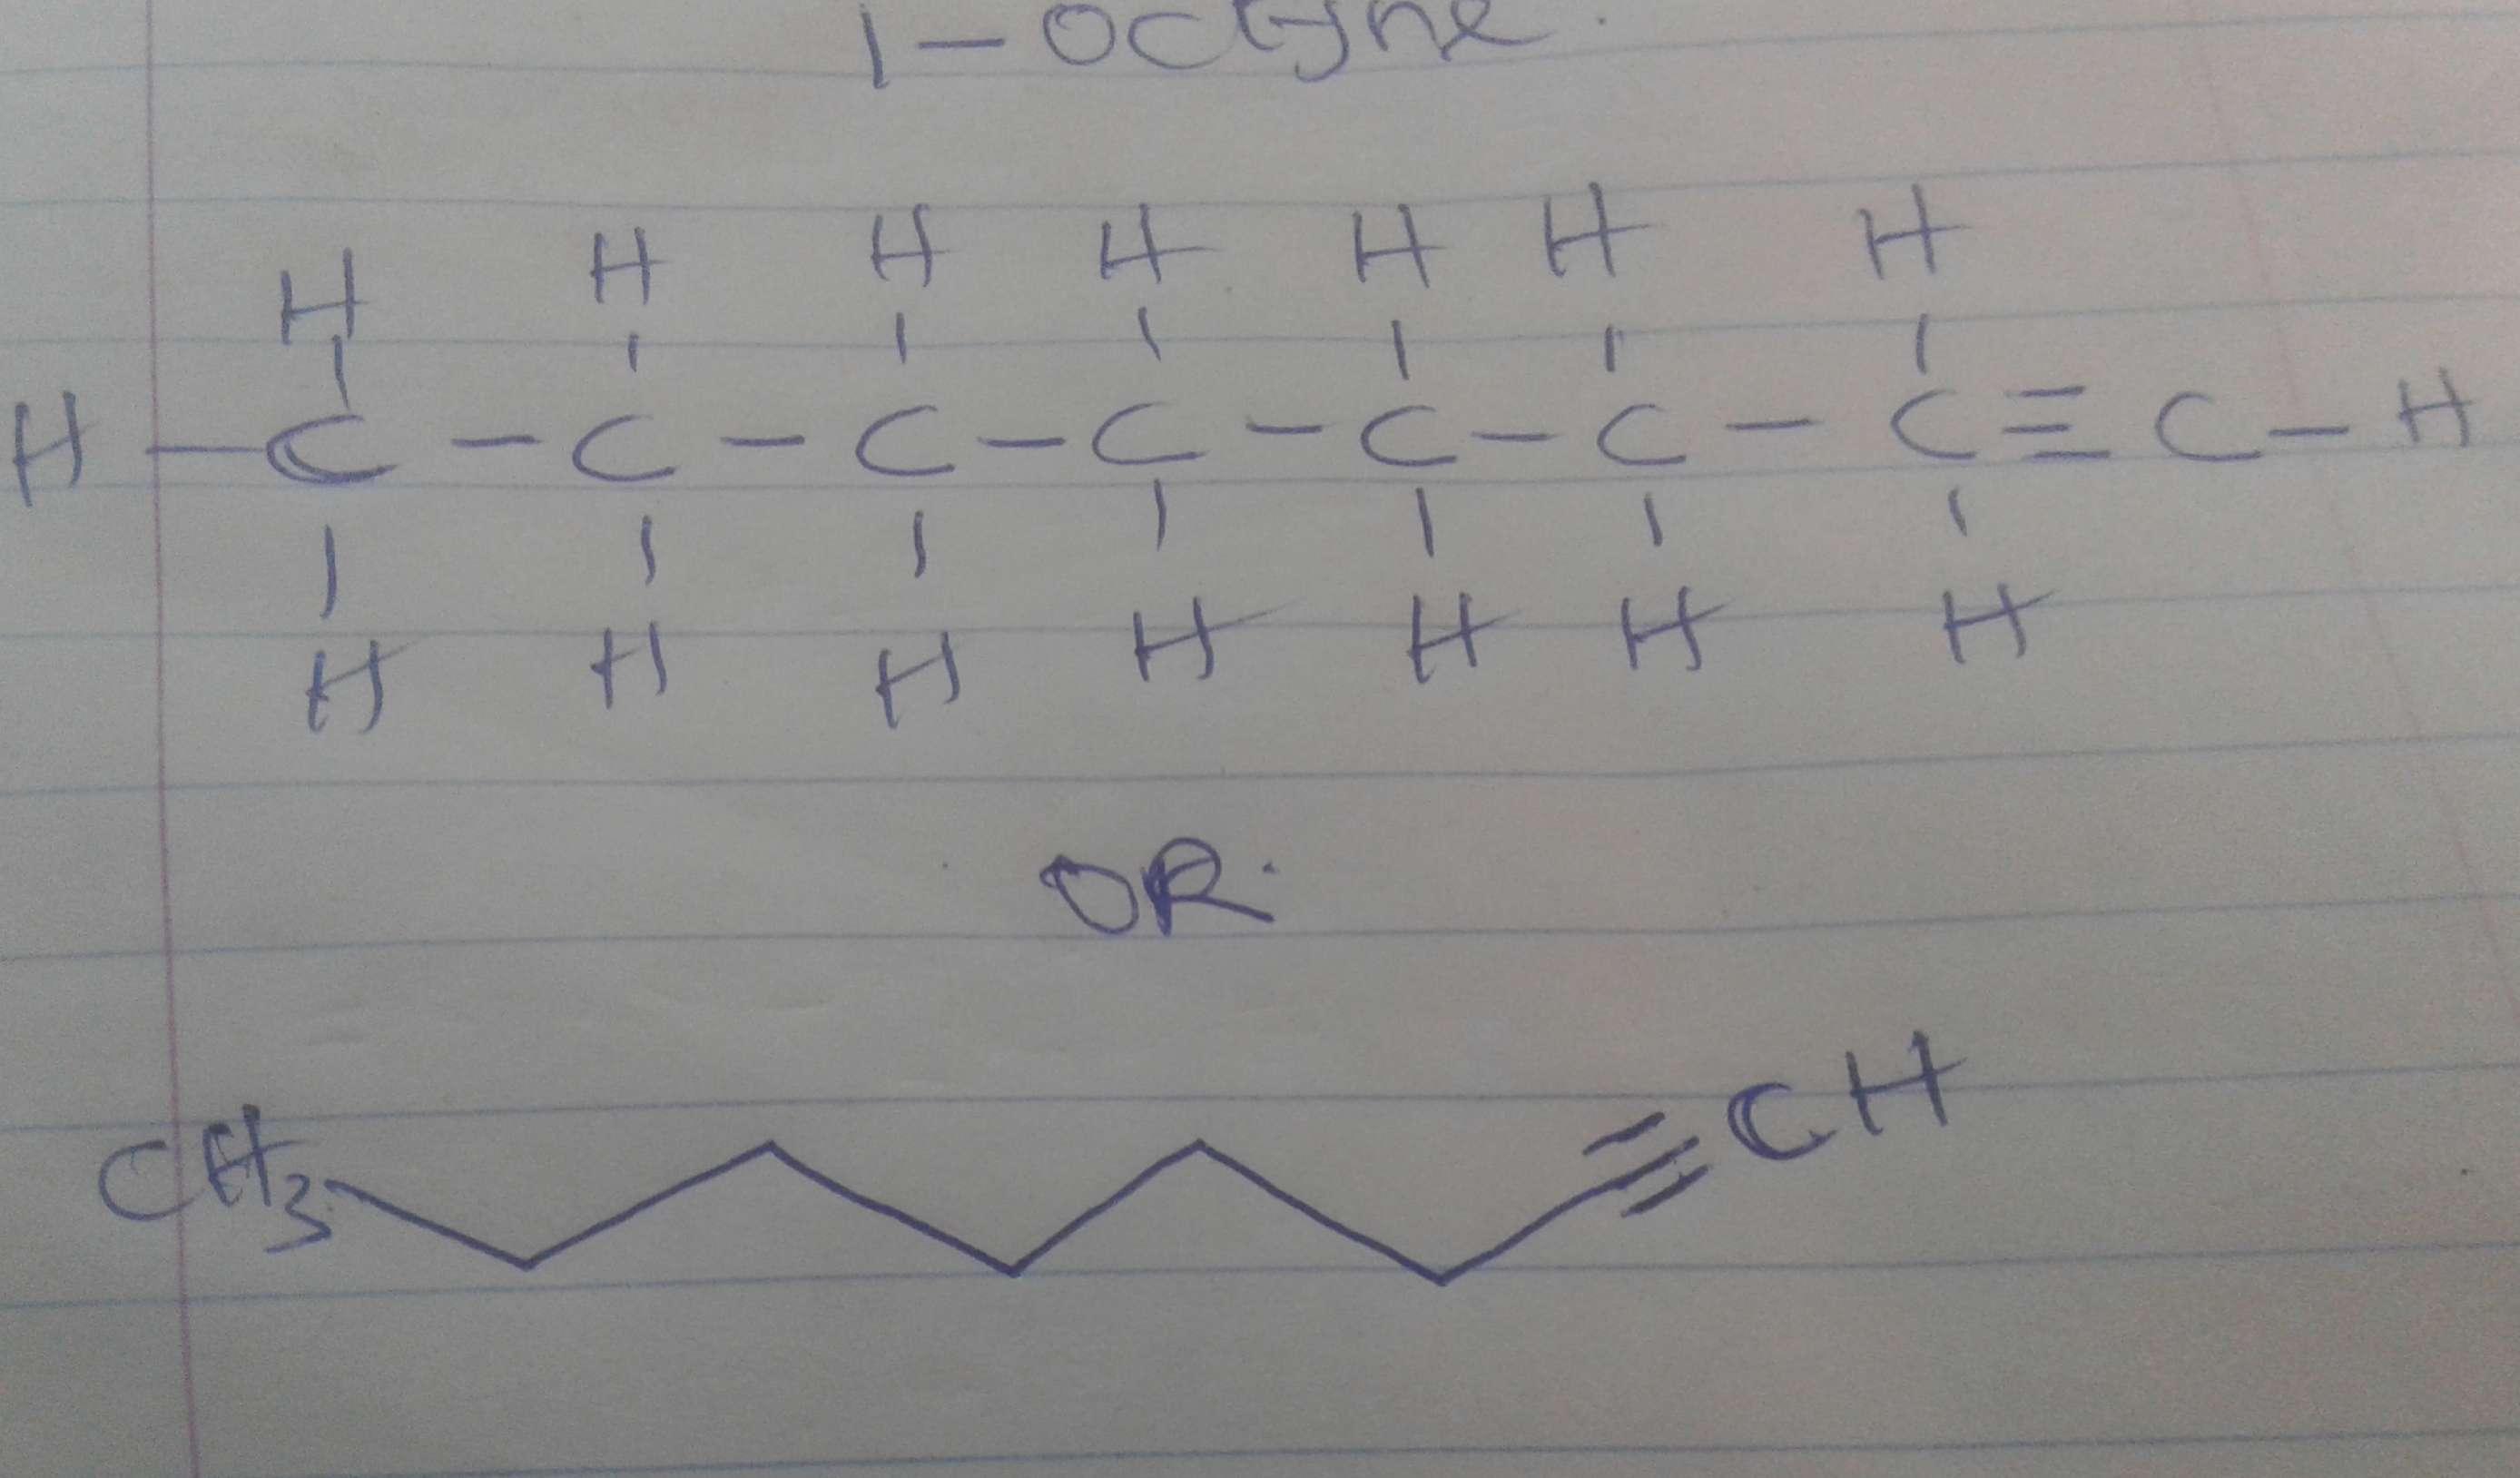 1-octyne.
H H H H H H H
H-C-C-C-C-C-C-C≡C-H
H H H H H H H
OR.
CH3 ≡CH